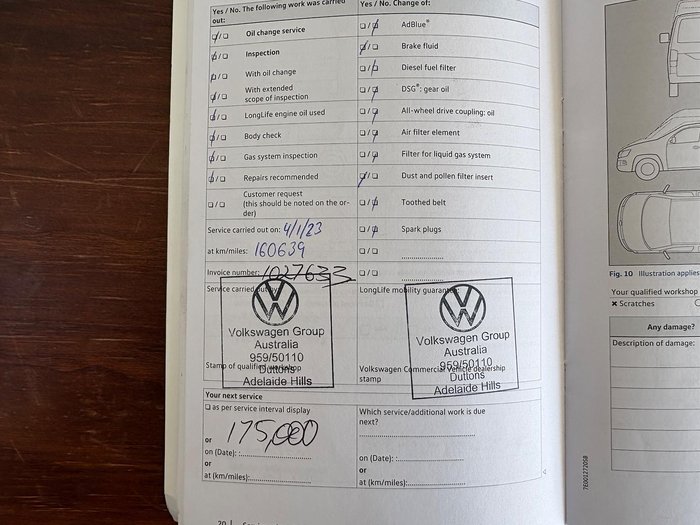 Yes / No. The following work was carried out:
Oil change service
Inspection
With oil change
With extended scope of inspection
LongLife engine oil used
Body check
Gas system inspection
Repairs recommended
Customer request
(this should be noted on the or-
der)
Service carried out on: 4/1/23
at km/miles: 160639
Invoice number: 1027633
Service carried out by:
VW
Volkswagen Group
Australia
959/50110
Duttons
Adelaide Hills
Stamp of qualified workshop
Yes / No. Change of:
AdBlue®
Brake fluid
Diesel fuel filter
DSG®: gear oil
All-wheel drive coupling: oil
Air filter element
Filter for liquid gas system
Dust and pollen filter insert
Toothed belt
Spark plugs
LongLife mobility guarantee:
VW
Volkswagen Group
Australia
959/50110
Duttons
Adelaide Hills
Volkswagen Commercial Vehicle dealership
stamp
Your next service
as per service interval display
175,000
or
on (Date):
or
at (km/miles):
Which service/additional work is due
next?
on (Date):
or
at (km/miles):
20
Fig. 10 Illustration applies
Your qualified workshop
Scratches
Any damage?
Description of damage:
7E0012720SB